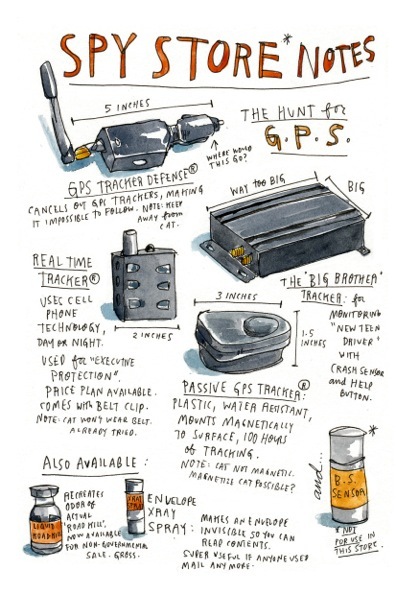 SPY STORE* NOTES
THE HUNT for
G.P.S.
5 INCHES
WHERE WOULD
THIS GO?
GPS TRACKER DEFENSE®
CANCELS OUT GPS TRACKERS, MAKING
IT IMPOSSIBLE TO FOLLOW. NOTE: KEEP
AWAY from
CAT.
WAY too BIG
BIG
THE "BIG BROTHER"
TRACKER: for
MONITORING
"NEW TEEN
DRIVER"
WITH
CRASH SENSOR
and HELP
BUTTON.
REAL TIME
TRACKER®
USES CELL
PHONE
TECHNOLOGY,
DAY OR NIGHT.
USED for "EXECUTIVE
PROTECTION".
PRICE PLAN AVAILABLE.
COMES WITH BELT CLIP.
NOTE: CAT WON'T WEAR BELT.
ALREADY TRIED.
2 INCHES
3 INCHES
1.5
INCHES
PASSIVE GPS TRACKER:®
PLASTIC, WATER RESISTANT,
MOUNTS MAGNETICALLY
TO SURFACE, 100 HOURS
of TRACKING.
NOTE: CAT NOT MAGNETIC.
MAGNETIZE CAT POSSIBLE?
ALSO AVAILABLE:
LIQUID
ROADKILL
RECREATES
ODOR OF
ACTUAL
"ROAD KILL".
NOW AVAILABLE
FOR NON-GOVERNMENTAL
SALE. GROSS.
XRAY
ENVELOPE
XRAY
SPRAY:
MAKES AN ENVELOPE
INVISIBLE SO YOU CAN
READ CONTENTS.
SUPER USEFUL IF ANYONE USED
MAIL ANY MORE.
and...
B.S.
SENSOR
*
* NOT
FOR USE IN
THIS STORE.